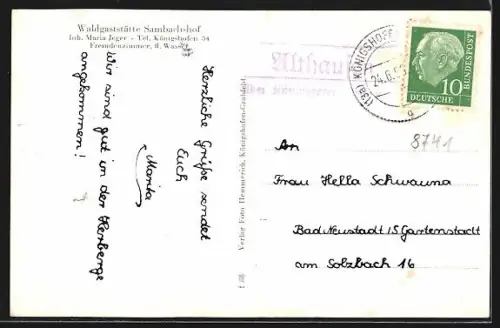 Waldgaststätte Sambachshof
Inh. Maria Jeger - Tel. Königshofen 34
Fremdenzimmer, fl. Wasser
Herzliche Grüße sendet
Euch
Marita
Wir sind gut in der Herberge
angekommen!
Verlag Foto Hemmerich, Königshofen-Grabfeld
Althau
über Königshofen
(13a) KÖNIGSHOFE
24.6.5
a
10
DEUTSCHE BUNDESPOST
8741
An
Frau Hella Schwauna
Bad Neustadt/S. Gartenstadt
am Solzbach 16